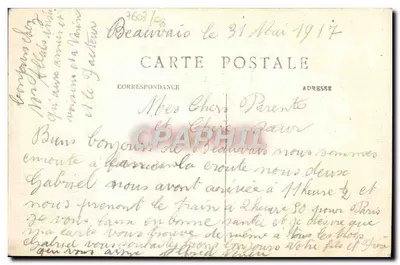 7603/98
Beauvais le 31 Mai 1917
CARTE POSTALE
CORRESPONDANCE
ADRESSE
Mes Chers Parents
et Chere Soeur
CPARAMA
Biens bonjours de Beauvais nous sommes
enroute à la croute nous deux
Gabriel nous avont arrivée a 11 heure ½ et
nous prenont le train a 2 heure 30 pour Paris
Je vous en bonne santé et je desire que
ma carte vous trouve de même a tous les trois
Gabriel vous bonjours Votre fils et
qui vous aime
bonjours
et le facteur